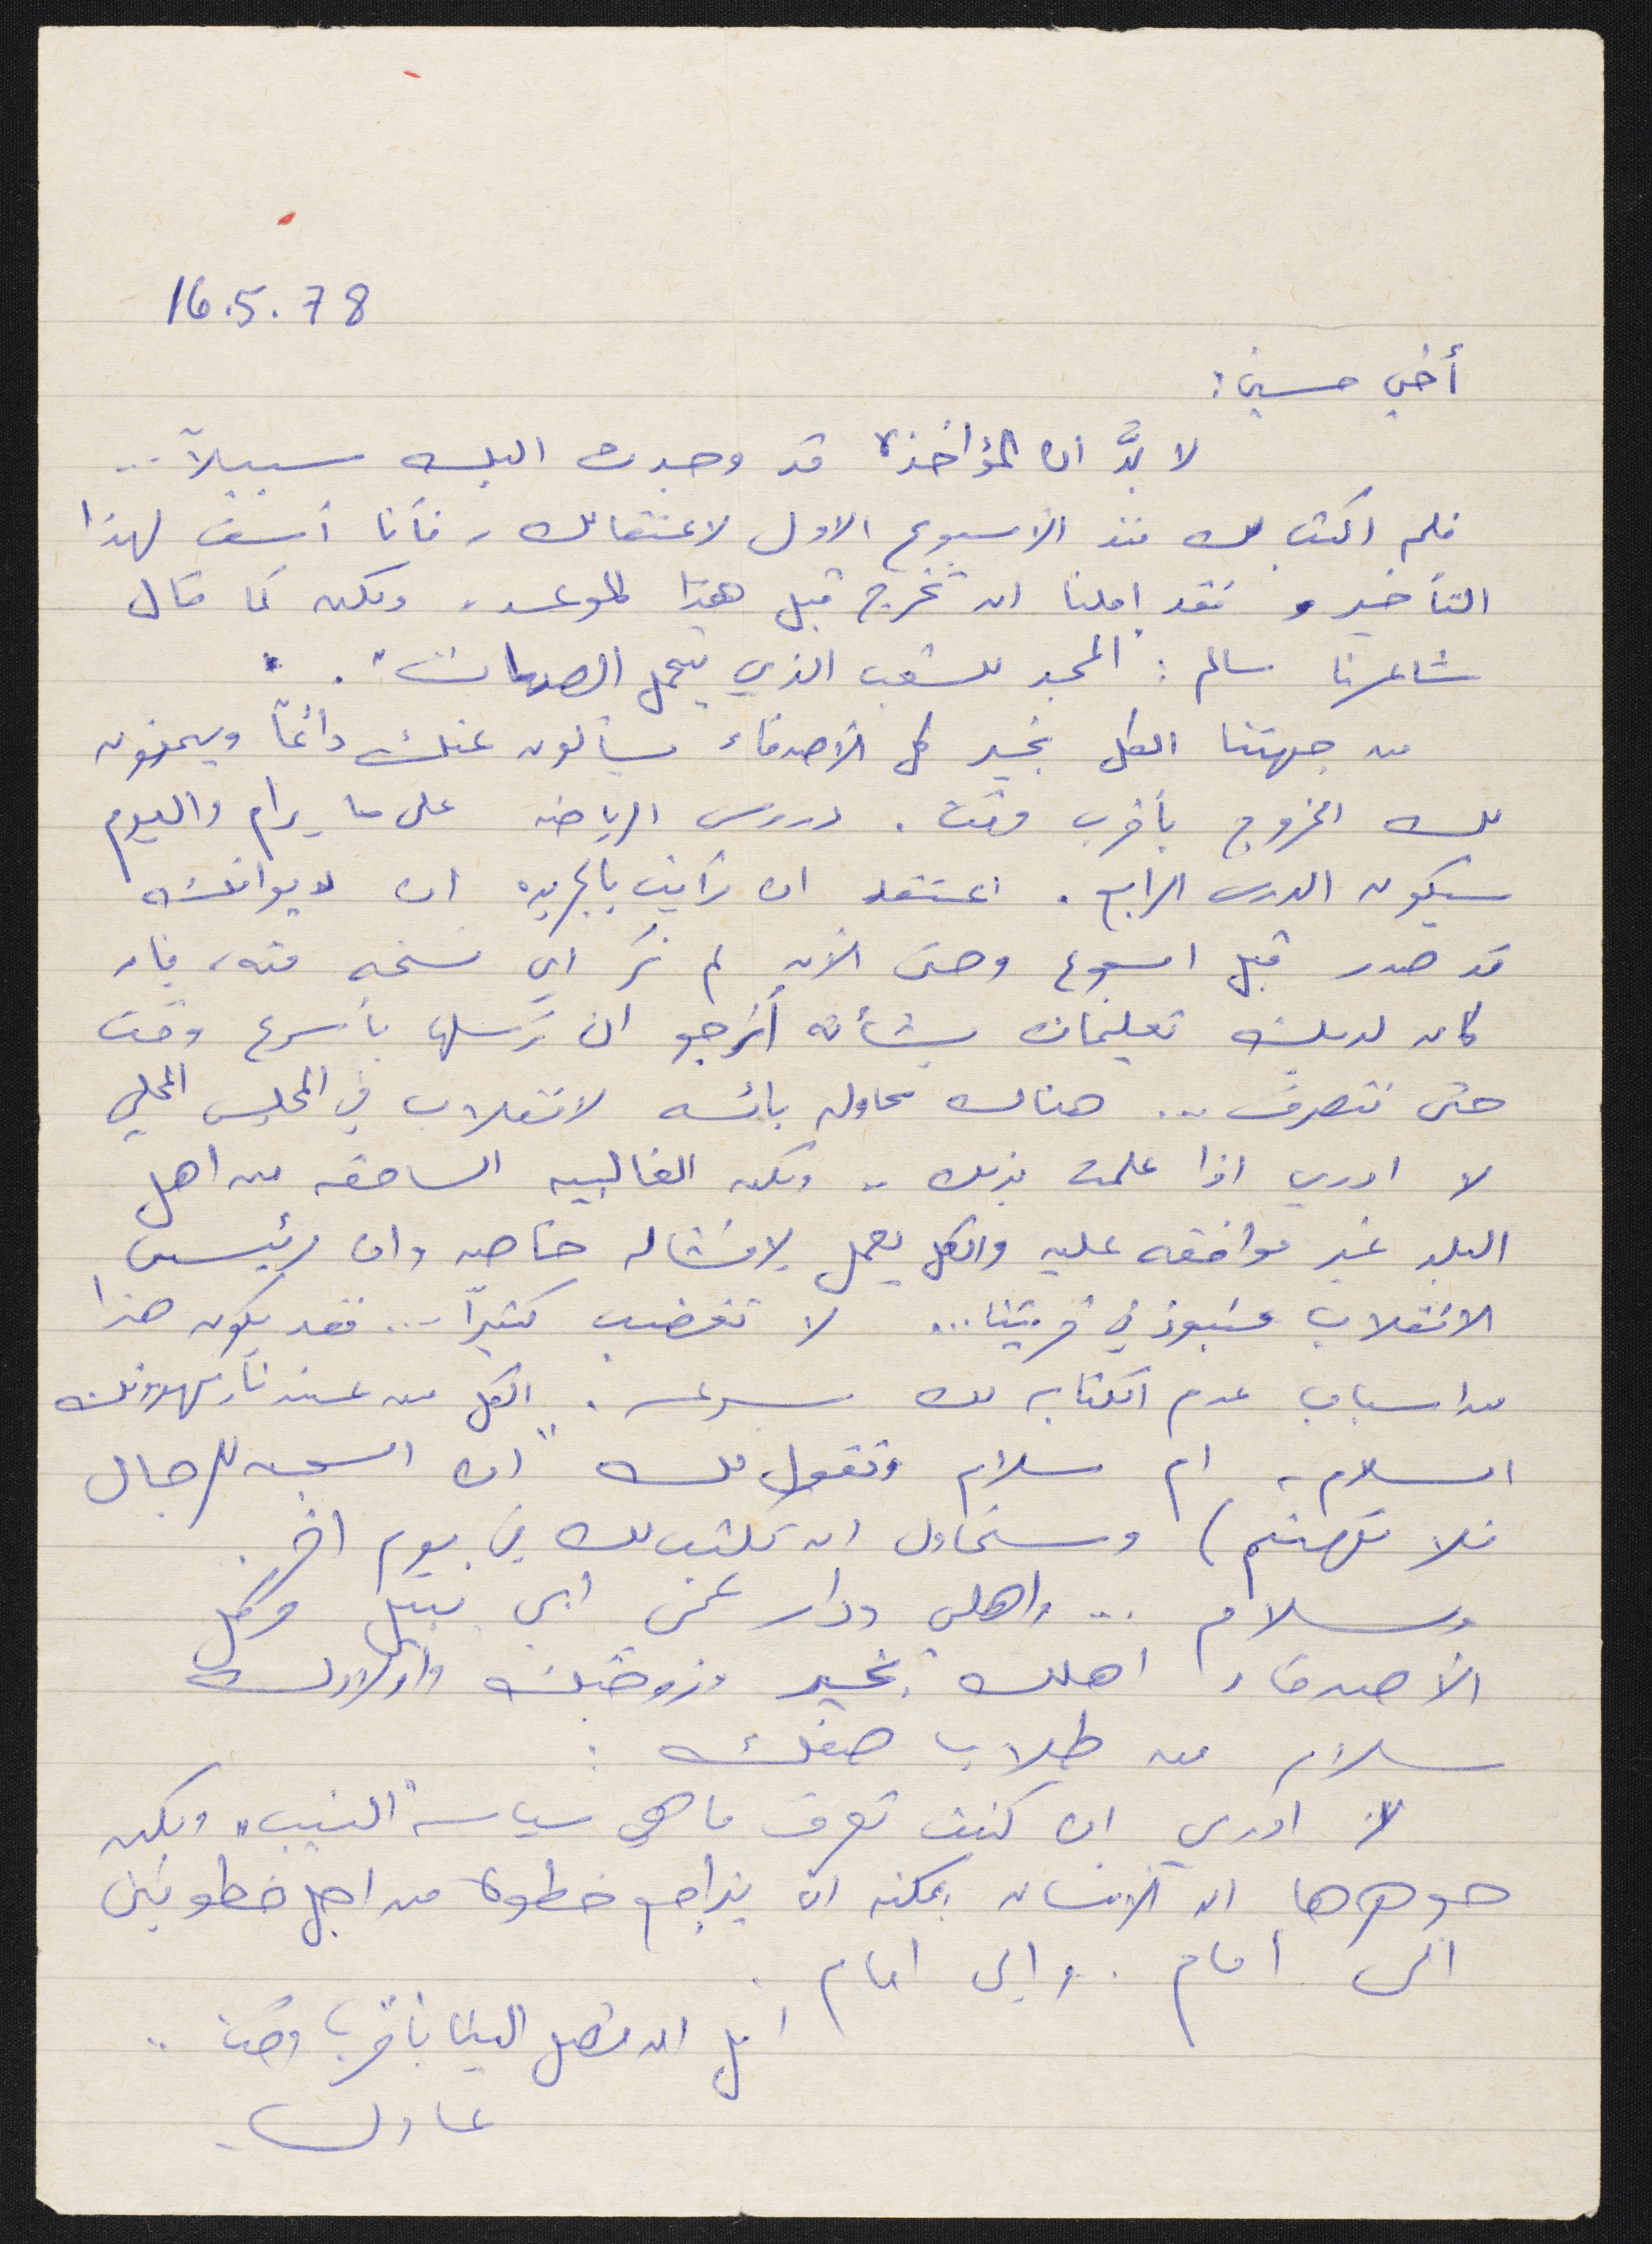 16.5.78
أخي حسين:
لا بدَّ ان المؤاخذة قد وجدت اليك سبيلاً..
فلم اكتب لك منذ الأسبوع الاول لاعتقالك، فأنا آسف لهذا
التأخير، فقد املنا ان تخرج قبل هذا الموعد، ولكن كما قال
شاعرنا سالم: المجد للشعب الذي يتحمل الصدمات".
من جهتنا الكل بخير كل الأصدقاء يسألون عنك دائماً ويتمنون
لك الخروج بأقرب وقت. دروس الرياضه على ما يرام واليوم
سيكون الدرس الرابع. اعتقد ان رأيت بالجريده ان ديوانك
قد صدر قبل اسبوع وحتى الآن لم نَر اي نسخه منه، فان
كان لديك تعليمات بشأنه أرجو ان ترسلها بأسرع وقت
حتى نتصرف... هناك محاوله بائسه لانقلاب في المجلس المحلي
لا ادري اذا علمت بذلك.. ولكن الغالبيه الساحقه من اهل
البلد غير موافقه عليه والكل يعمل لإفشاله خاصه وان رئيس
الانقلاب منبوذ في قريتنا... لا تغضب كثيراً... فقد يكون هذا
من اسباب عدم الكتابه لك بسرعه. الكل من عندنا يهدونك
السلام، ام سلام وتقول لك "ان السجن للرجال
فلا تهتم) وستحاول ان تكتب لك في يوم اخر.
وسلام .. واهلي ودار عمي ابي نبيل وكل
الأصدقاء اهلك بخير وزوجتك واولادك
سلام من طلاب صفك:
لا ادري ان كنت تعرف ما هي سياسة "النيب" ولكن
جوهرها ان الانسان يمكنه ان يتراجع خطوة من اجل خطوتين
الى أمام. وإلى امام.
امل ان تصل الينا بأقرب وقت..
عادل